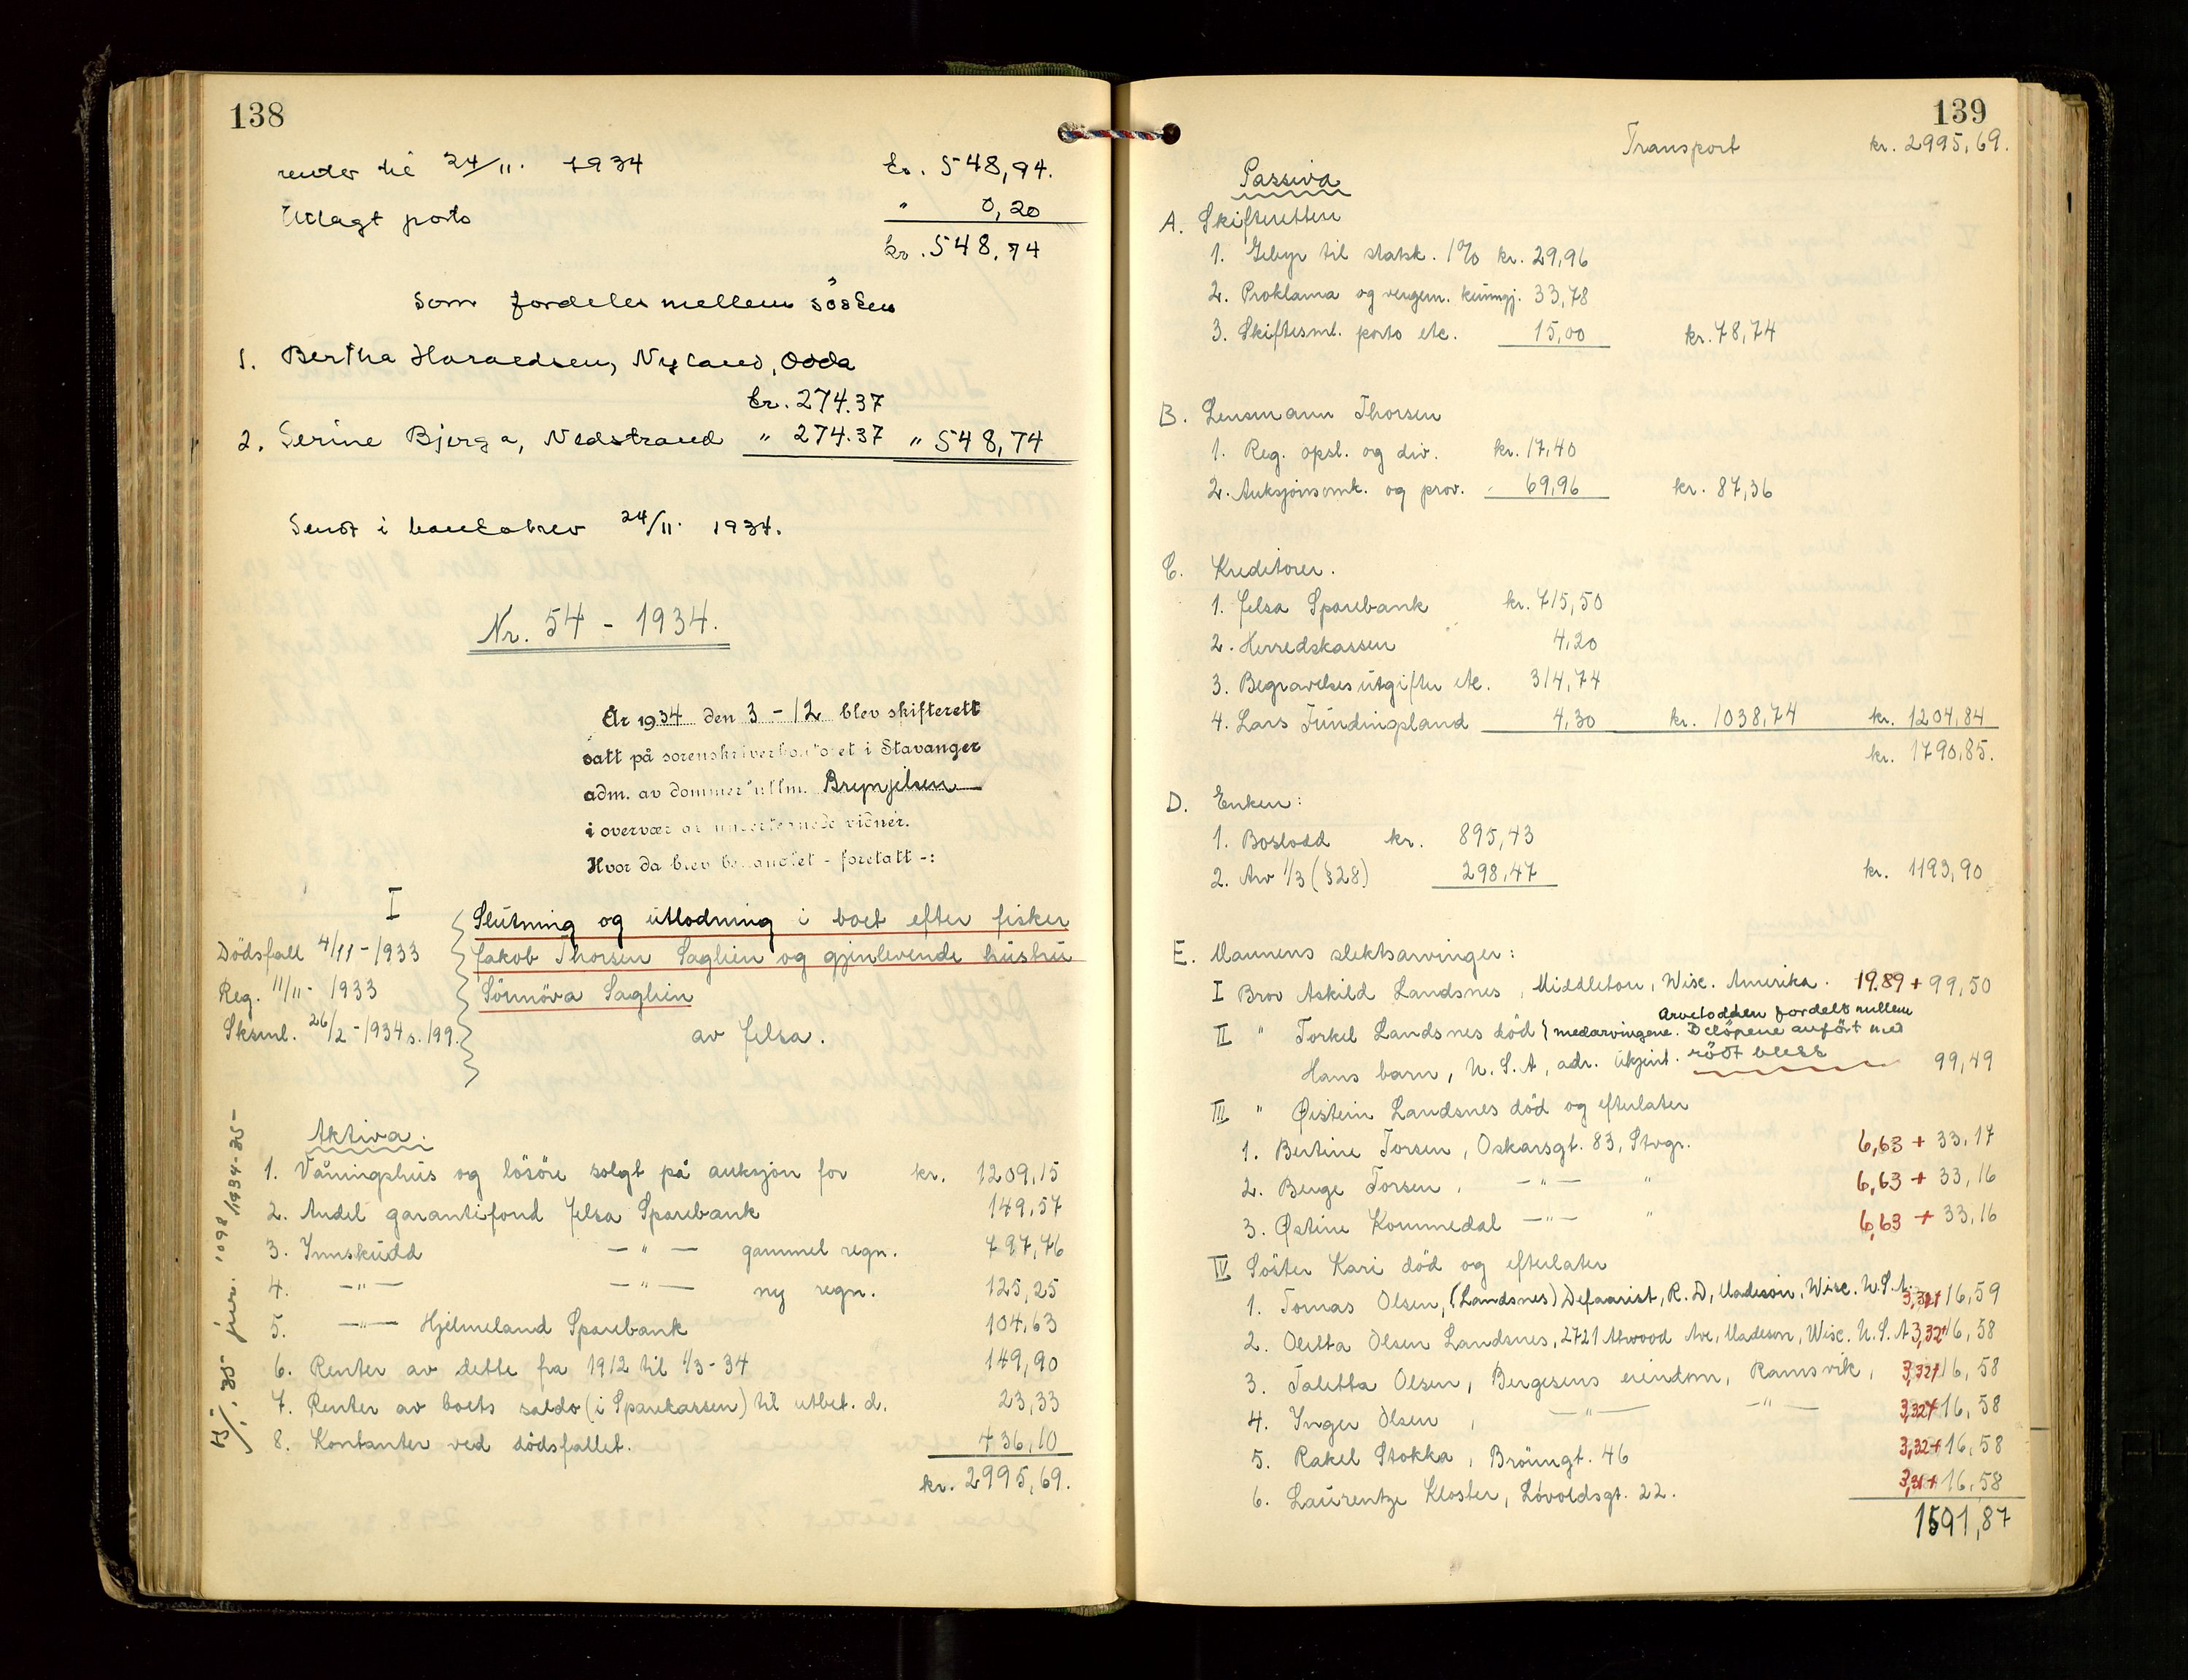 138
renter til 24/11. 1934 kr. 548,94.
Utlagt porto " 0,20
kr. 548,74
som fordeles mellem søsken
1. Bertha Haraldsen, Nyland, Odda
kr. 274.37
2. Serine Bjerga, Nedstrand " 274.37 " 548,74
Sendt i bankobrev 24/11. 1934.
Nr. 54 - 1934.
År 1934 den 3 - 12 blev skifterett
satt på sorenskriverkontoret i Stavanger
adm. av dommerfullm. Brynjelsen
i overvær av undertegnede vidner.
Hvor da blev behandlet - foretatt -:
I
Dödsfall 4/11 - 1933
Reg. 11/11 - 1933
Sksml. 26/2 - 1934 s. 199.
Slutning og utlodning i boet efter fisker
Jakob Thorsen Saglien og gjenlevende hustru
Sönnöva Saglien
av Jelsa.
Aktiva.
1. Våningshus og lösöre solgt på auksjon for kr. 1209,15
2. Andel garantifond Jelsa Sparebank 149,57
3. Innskudd — " — gammel regn. 797,76
4. — " — — " — ny regn. 125,25
5. — " — Hjelmeland Sparebank 104,63
6. Renter av dette fra 1912 til 1/3 - 34 149,90
7. Renter av boets saldo (i Sparekassen) til utbet. d. 23,33
8. Kontanter ved dödsfallet. 436,10
kr. 2995,69.
jur. 1098/1934-35-
139
Transport kr. 2995,69.
Passiva
A. Skifteretten
1. Gebyr til statsk. 1% kr. 29,96
2. Proklama og vergem. kunngj. 33,78
3. Skiftesml. porto etc. 15,00 kr. 78,74
B. Lensmann Thorsen
1. Reg. opsl. og div. kr. 17,40
2. Auksjonsomk. og prov. 69,96 kr. 87,36
C. Kreditorer.
1. Jelsa Sparebank kr. 715,50
2. Herredskassen 4,20
3. Begravelsesutgifter etc. 314,74
4. Lars Tundingsland 4,30 kr. 1038,74 kr. 1204,84
kr. 1790,85.
D. Enken:
1. Boslodd kr. 895,43
2. Arv 1/3 (§28) 298,47 kr. 1193,90
E. Mannens slektsarvinger:
I Bror Askild Landsnes, Middleton, Wisc. Amerika. 19.89 + 99,50
Arvelodden fordelt mellem
II " Torkel Landsnes död } medarvingene. Belöpene anfört med
Hans barn, U.S.A, adr. ukjent. rödt blekk 99,49
III " Øistein Landsnes död og efterlater
1. Bertine Torsen, Oskarsgt. 83, Stvgr. 6,63 + 33,17
2. Berge Torsen, — " — " 6,63 + 33,16
3. Østine Kommedal — " — " 6,63 + 33,16
IV Söster Kari död og efterlater
1. Tomas Olsen, (Landsnes) Defaarist, R.D, Madeson, Wisc. U.S.A. 3,32+ 16,59
2. Oletta Olsen Landsnes, 2721 Atwood Ave, Madeson, Wisc. U.S.A 3,32+ 16,58
3. Taletta Olsen, Bergesens eiendom, Ramsvik, 3,32+ 16,58
4. Inger Olsen, — " — — " — 3,32+ 16,58
5. Rakel Stokka, Bröungt. 46 3,32+ 16,58
6. Laurentze Kloster, Lövoldsgt. 22. 3,31+ 16,58
1591,87